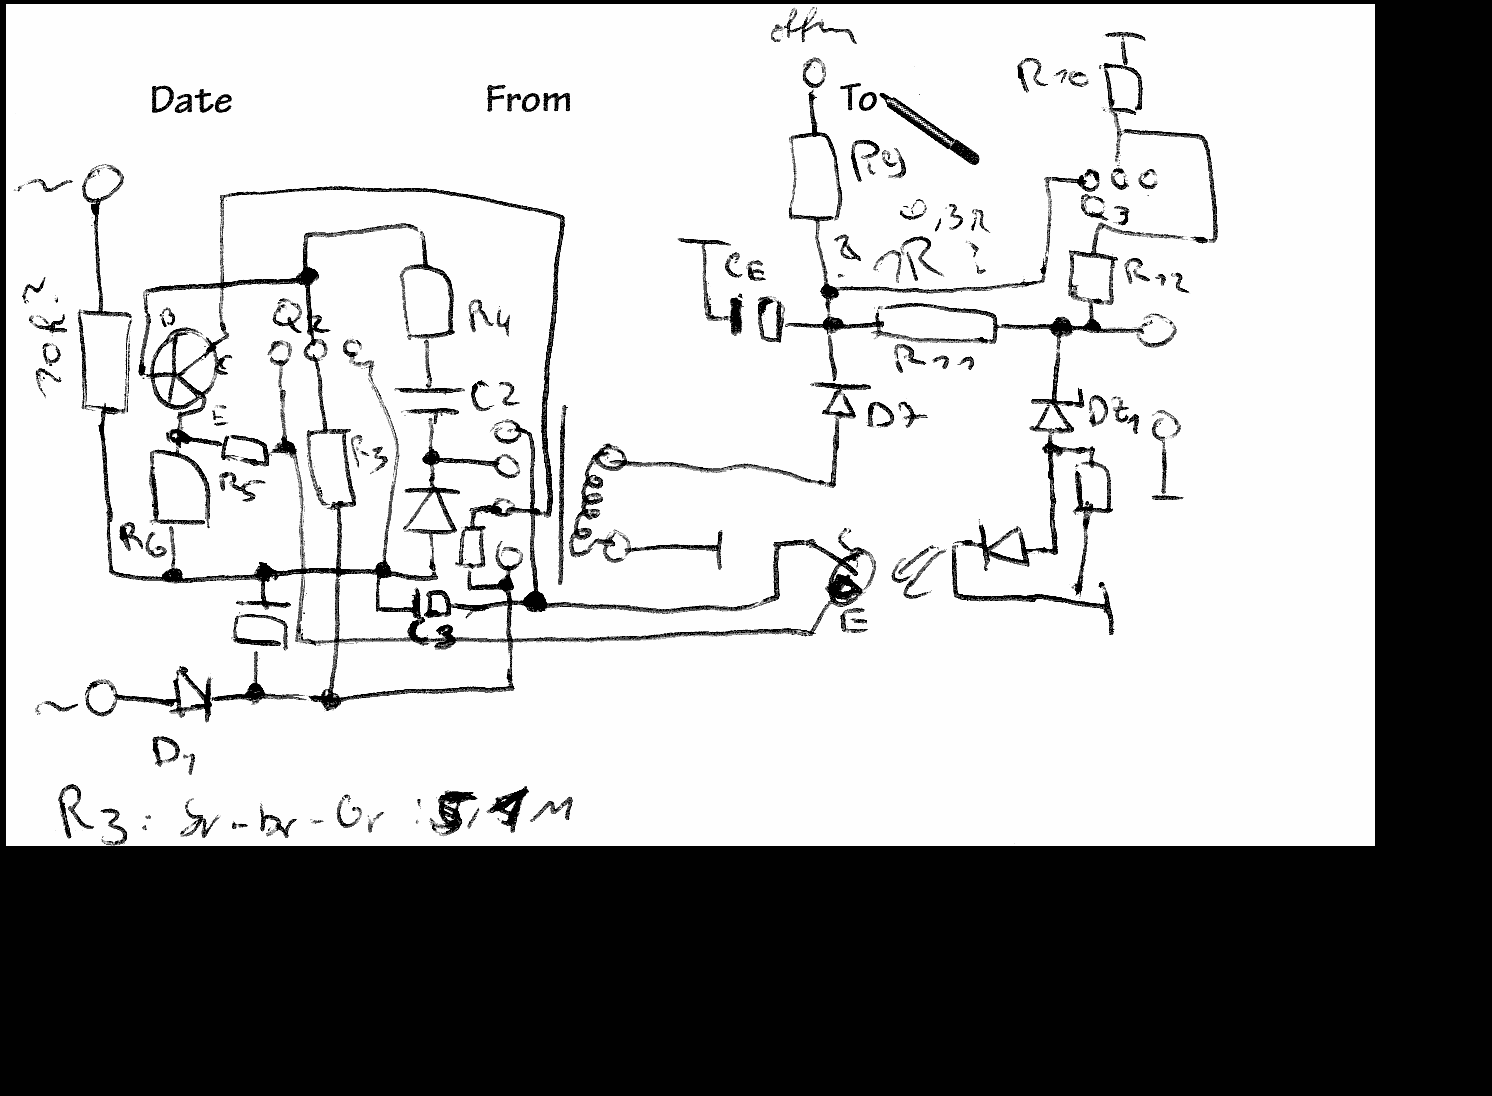 Date
From
To
R10
R9
0,3R
1R ?
Q3
CE
R12
R11
D7
DZ1
10R?
B
C
E
Q2
R4
C2
R3
R5
R6
C3
C
E
D1
~
~
R3: gr-br-Gr : 5,1M